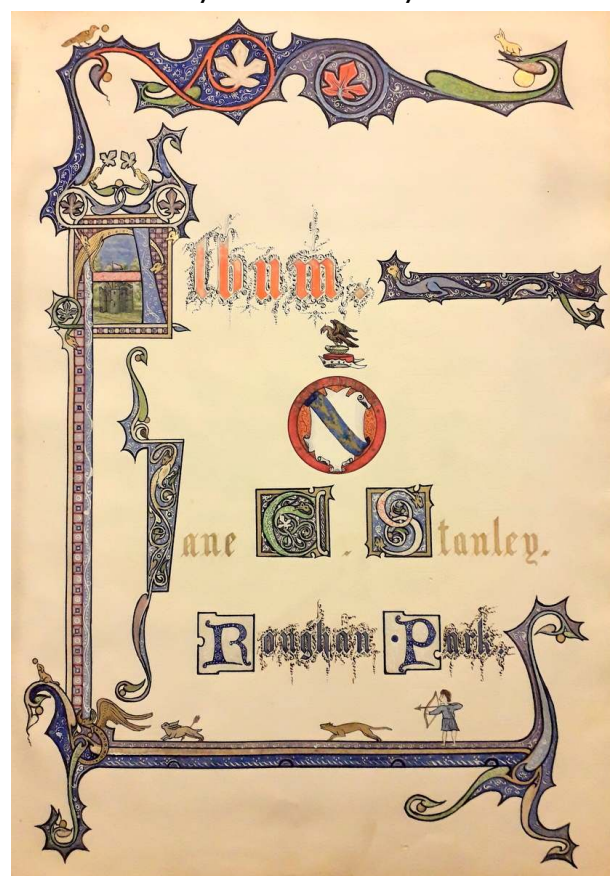 Album.
Jane . Stanley.
Roughan Park.